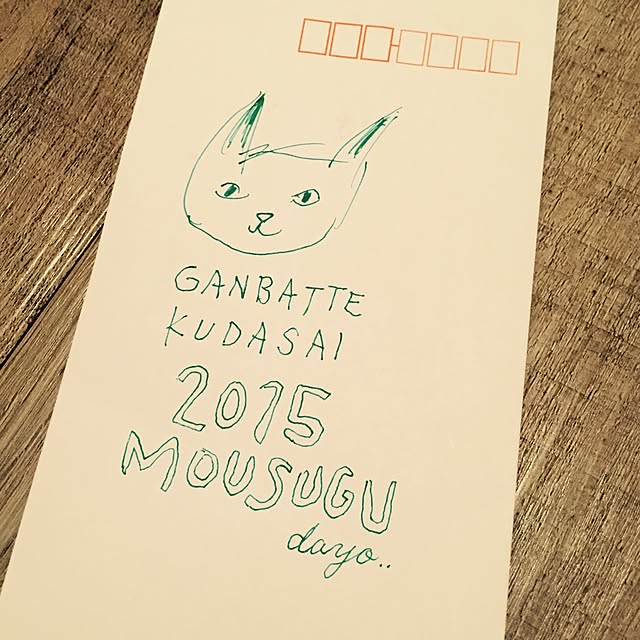 GANBATTE
KUDASAI
2015
MOUSUGU
dayo..